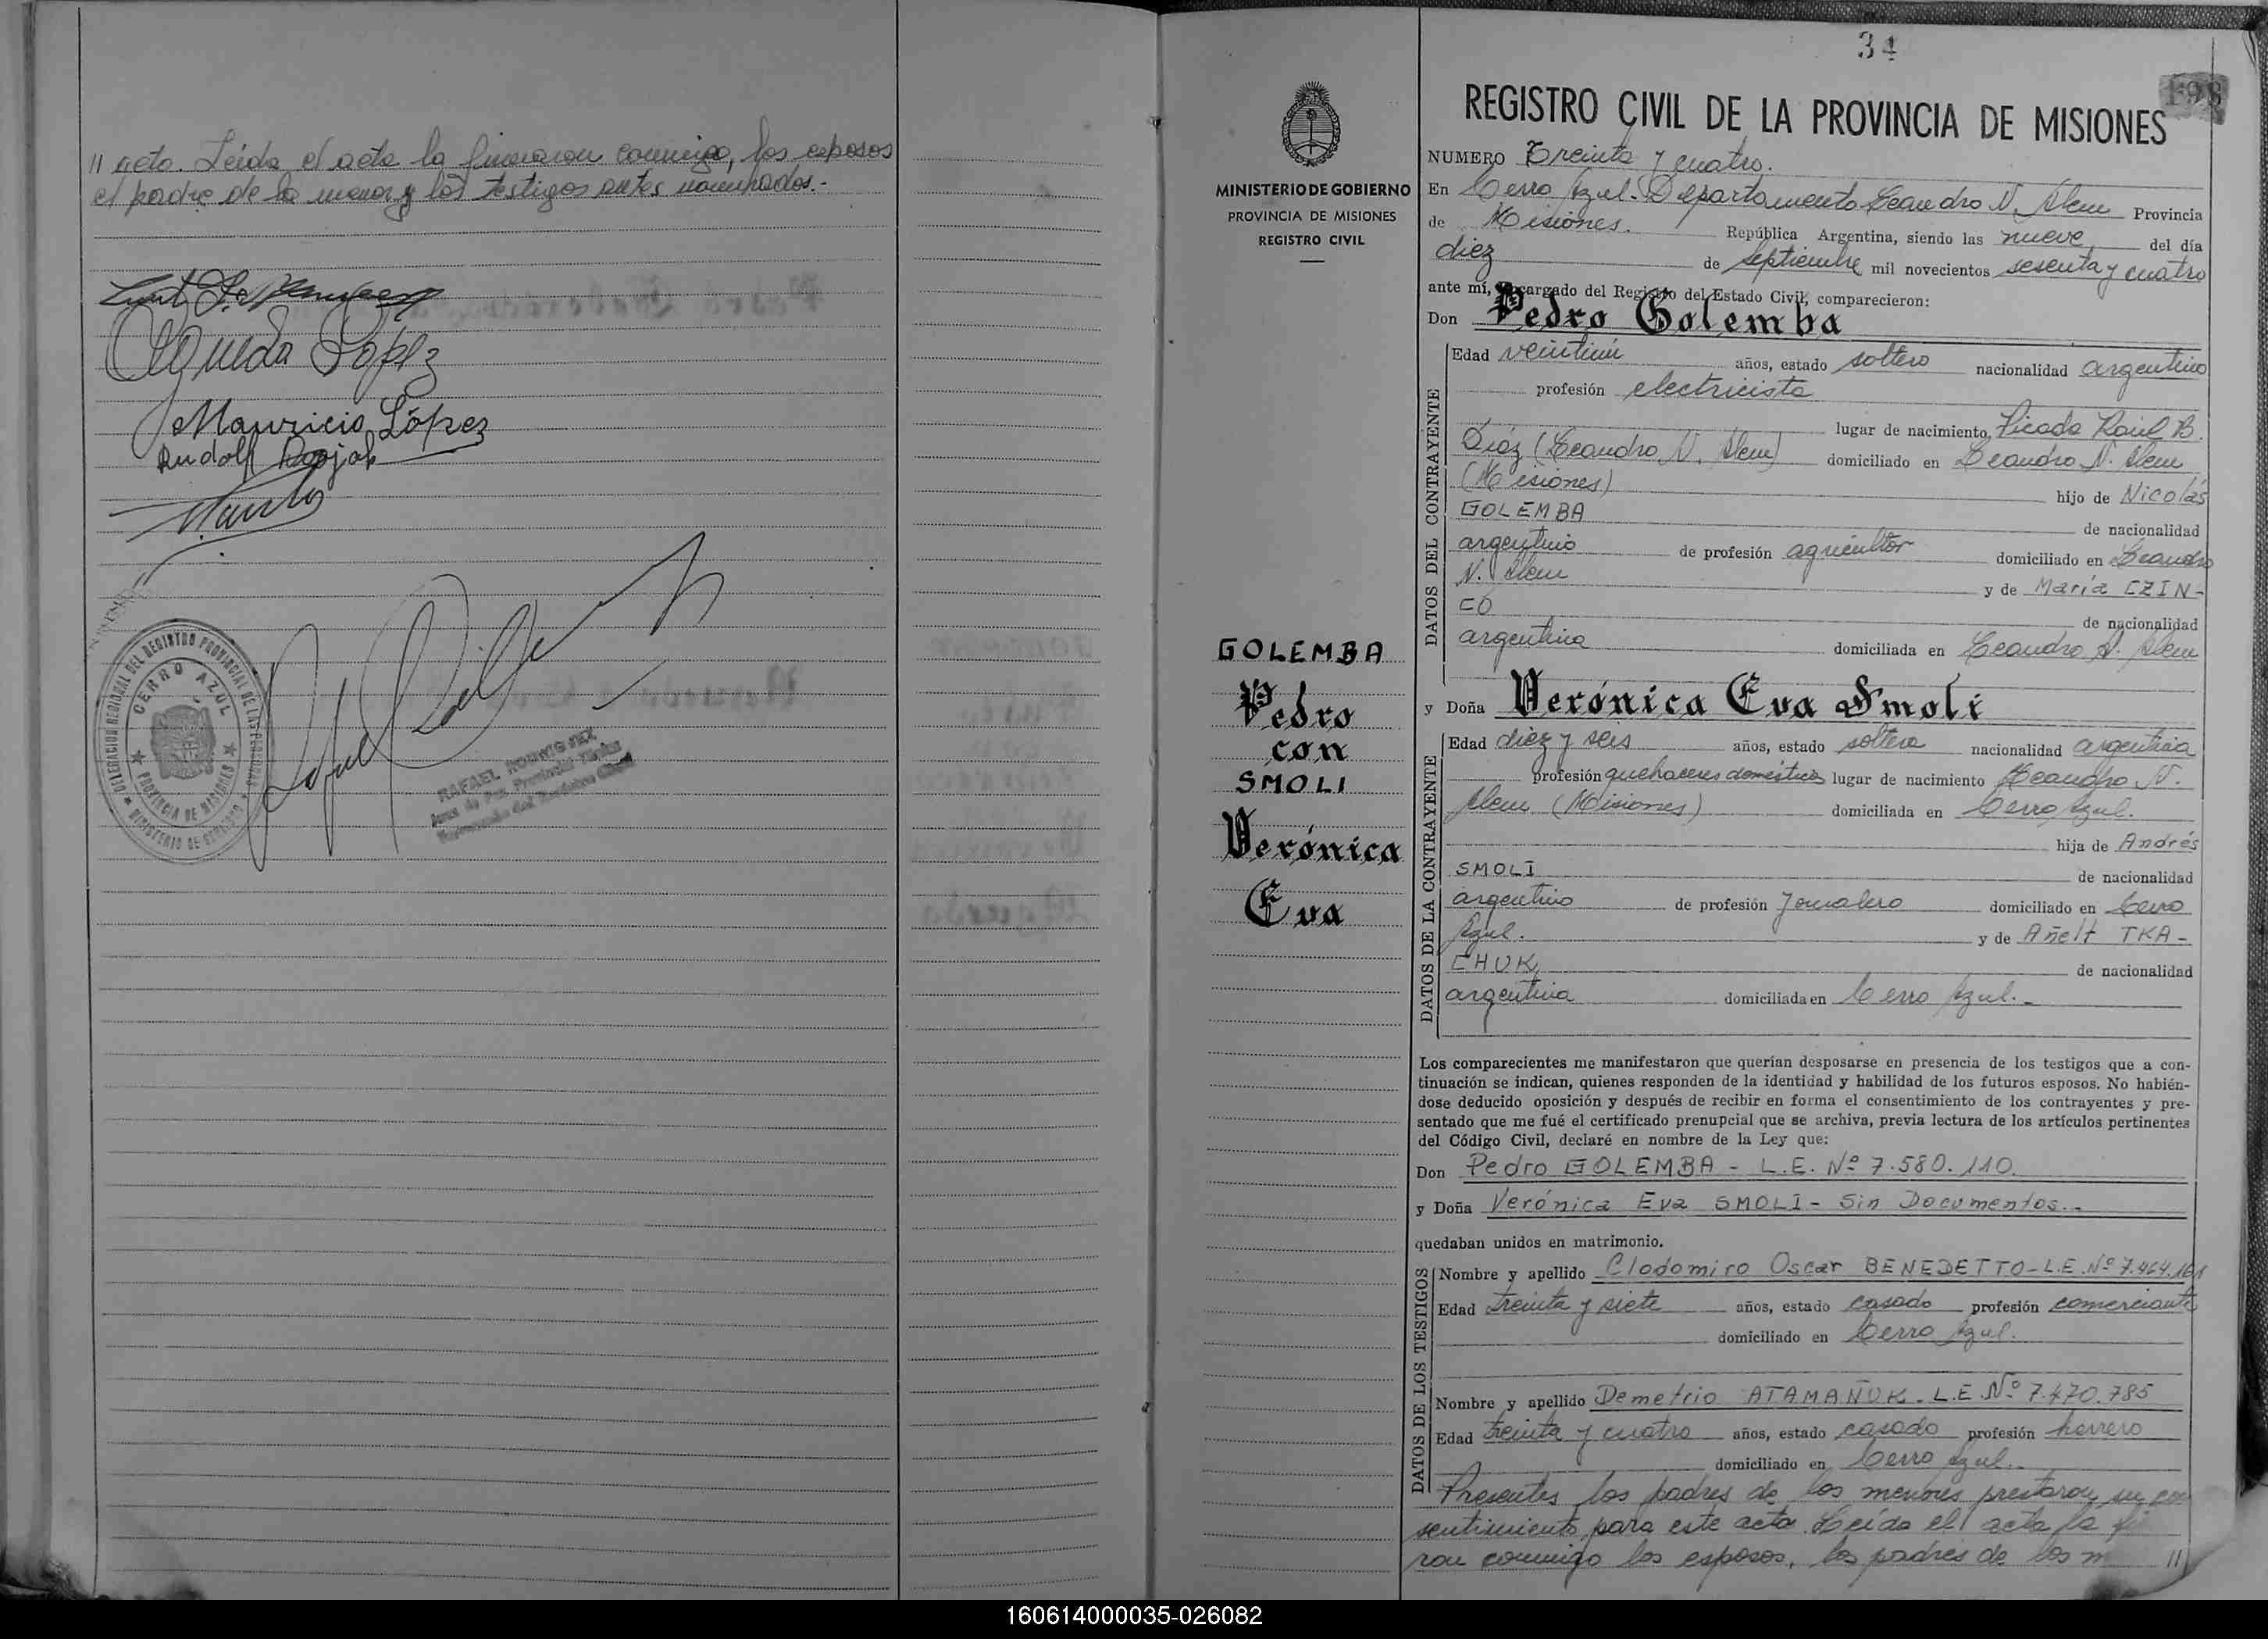 // acto. Leída el acta la firmaron conmigo, los esposos
el padre de la menor y los testigos antes nombrados.-
Agueda López
Mauricio López
Rudolf
DELEGACION REGIONAL DEL REGISTRO PROVINCIAL DE LAS PERSONAS
CERRO AZUL
PROVINCIA DE MISIONES
MINISTERIO DE GOBIERNO
RAFAEL RODRIGUEZ
Juez de Paz
34
198
MINISTERIO DE GOBIERNO
PROVINCIA DE MISIONES
REGISTRO CIVIL
GOLEMBA
Pedro
con
SMOLI
Verónica
Eva
REGISTRO CIVIL DE LA PROVINCIA DE MISIONES
NUMERO Treinta y cuatro.
En Cerro Azul. Departamento Leandro N. Alem Provincia
de Misiones. República Argentina, siendo las nueve del día
diez de septiembre mil novecientos sesenta y cuatro
ante mí, Encargado del Registro del Estado Civil, comparecieron:
Don Pedro Golemba
DATOS DEL CONTRAYENTE
Edad veintiún años, estado soltero nacionalidad argentino
profesión electricista
lugar de nacimiento Picada Raúl B.
Díaz (Leandro N. Alem) domiciliado en Leandro N. Alem
(Misiones) hijo de Nicolás
GOLEMBA de nacionalidad
argentino de profesión agricultor domiciliado en Leandro
N. Alem y de María CZIN-
CO de nacionalidad
argentina domiciliada en Leandro N. Alem
y Doña Verónica Eva Smoli
DATOS DE LA CONTRAYENTE
Edad diez y seis años, estado soltera nacionalidad argentina
profesión quehaceres domésticos lugar de nacimiento Leandro N.
Alem (Misiones) domiciliada en Cerro Azul.
hija de Andrés
SMOLI de nacionalidad
argentino de profesión Jornalero domiciliado en Cerro
Azul. y de Añelt TKA-
CHUK de nacionalidad
argentina domiciliada en Cerro Azul.-
Los comparecientes me manifestaron que querían desposarse en presencia de los testigos que a con-
tinuación se indican, quienes responden de la identidad y habilidad de los futuros esposos. No habién-
dose deducido oposición y después de recibir en forma el consentimiento de los contrayentes y pre-
sentado que me fué el certificado prenupcial que se archiva, previa lectura de los artículos pertinentes
del Código Civil, declaré en nombre de la Ley que:
Don Pedro GOLEMBA - L.E. Nº 7.580.110.
y Doña Verónica Eva SMOLI - Sin Documentos.-
quedaban unidos en matrimonio.
DATOS DE LOS TESTIGOS
Nombre y apellido Clodomiro Oscar BENEDETTO - L.E. Nº 7.464.161
Edad treinta y siete años, estado casado profesión comerciante
domiciliado en Cerro Azul.
Nombre y apellido Demetrio ATAMAÑUK - L.E. Nº 7.470.785
Edad treinta y cuatro años, estado casado profesión herrero
domiciliado en Cerro Azul.
Presentes los padres de los menores prestaron su con
sentimiento para este acto. Leída el acta la fi
ron conmigo los esposos, los padres de los m //
160614000035-026082